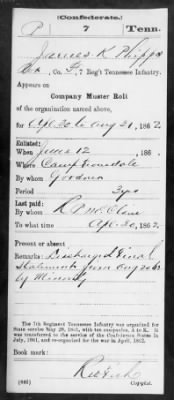 (Confederate.)
P 7 Tenn.
James K Phipps
, Co. F, 7 Reg't Tennessee Infantry.
Appears on
Company Muster Roll
of the organization named above,
for Apl 30 to Aug 31, 186 2.
Enlisted:
When June 12, 186 .
Where Camp Trousdale
By whom Goodner
Period 3 yrs
Last paid:
By whom
To what time Apl 30, 186 2.
Present or absent
Remarks: Discharged Final
Statements from Aug
by Minority
The 7th Regiment Tennessee Infantry was organized for
State service May 28, 1861, with ten companies, A to K. It
was transferred to the service of the Confederate States in
July, 1861, and re-organized for the war in April, 1862.
Book mark:
(642) Copyist.